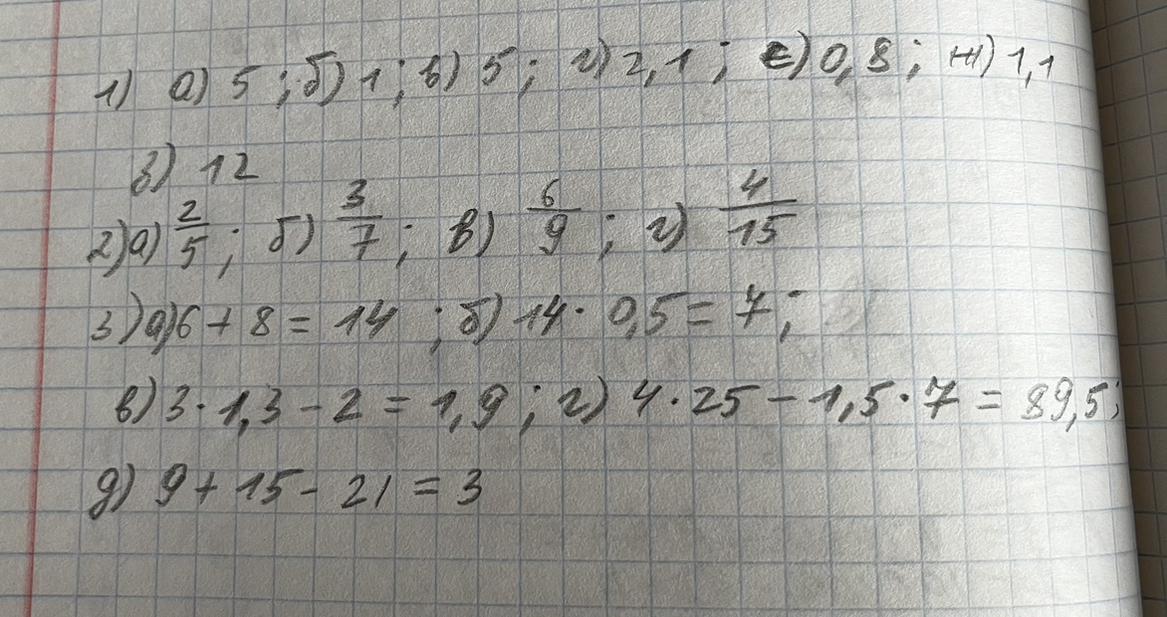 1) а) 5 ; б) 1 ; в) 5 ; г) 2,1 ; е) 0,8 ; ж) 1,1
з) 12
2) а) 2/5 ; б) 3/7 ; в) 6/9 ; г) 4/15
3) а) 6 + 8 = 14 ; б) 14 · 0,5 = 7 ;
в) 3 · 1,3 - 2 = 1,9 ; г) 4 · 25 - 1,5 · 7 = 89,5 ;
д) 9 + 15 - 21 = 3